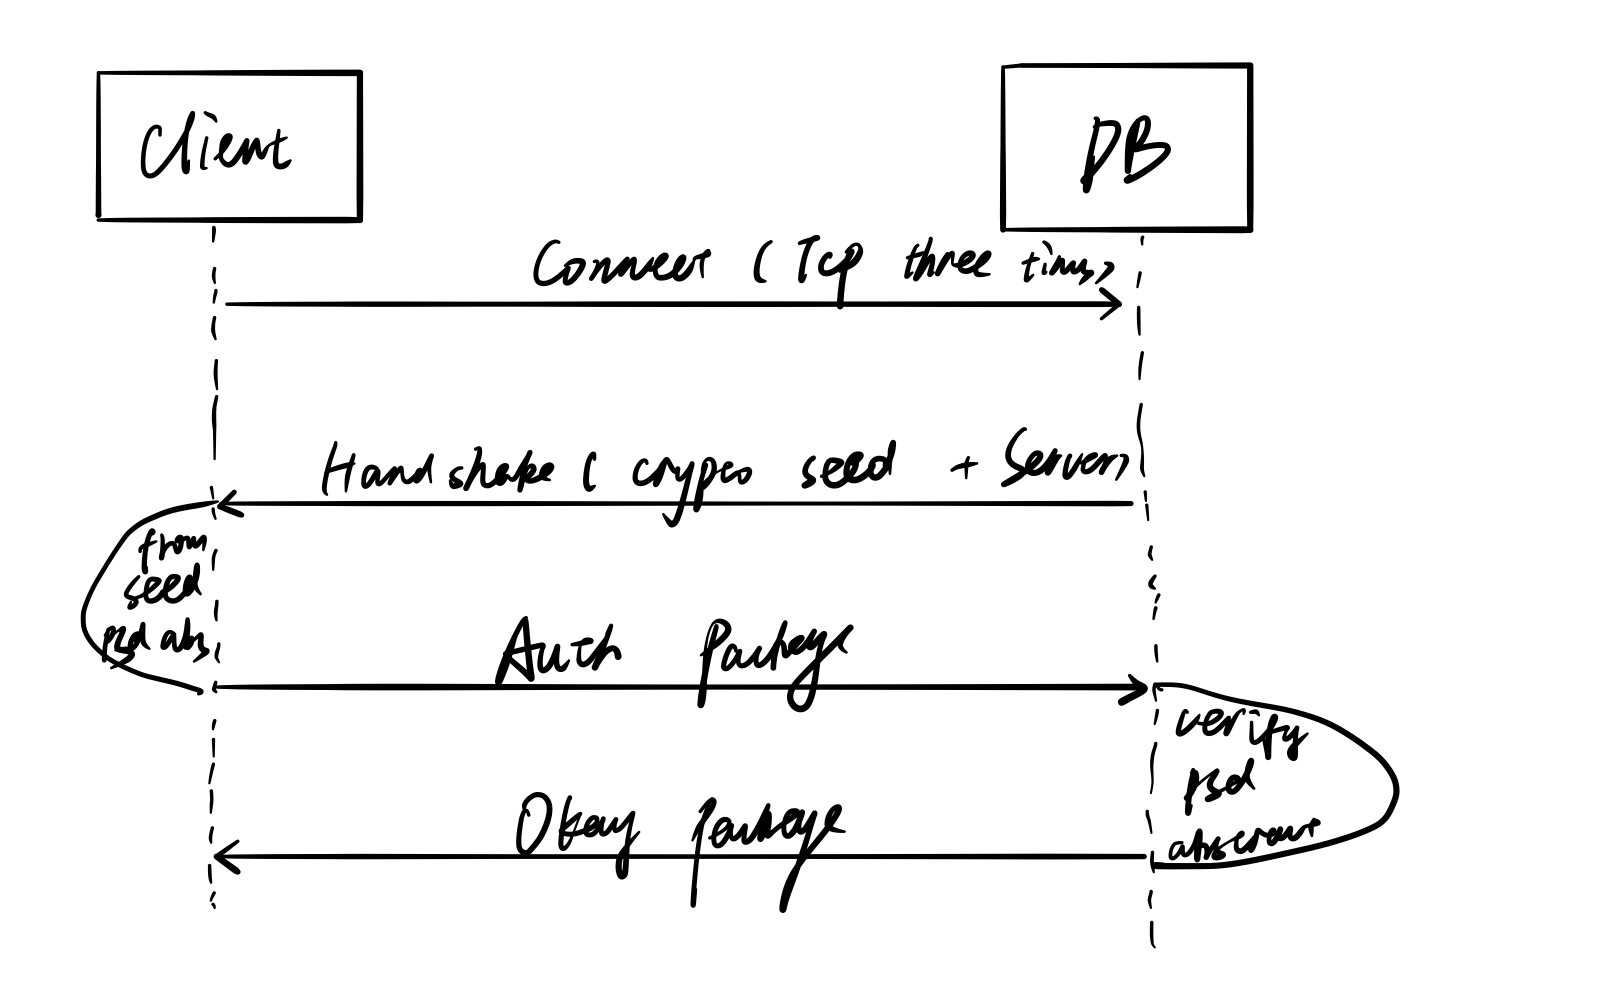 Client
DB
Connect (Tcp three times)
Handshake (crypo seed + Server)
from
seed
psd abs
Auth Package
verify
psd
abscract
Okey Package